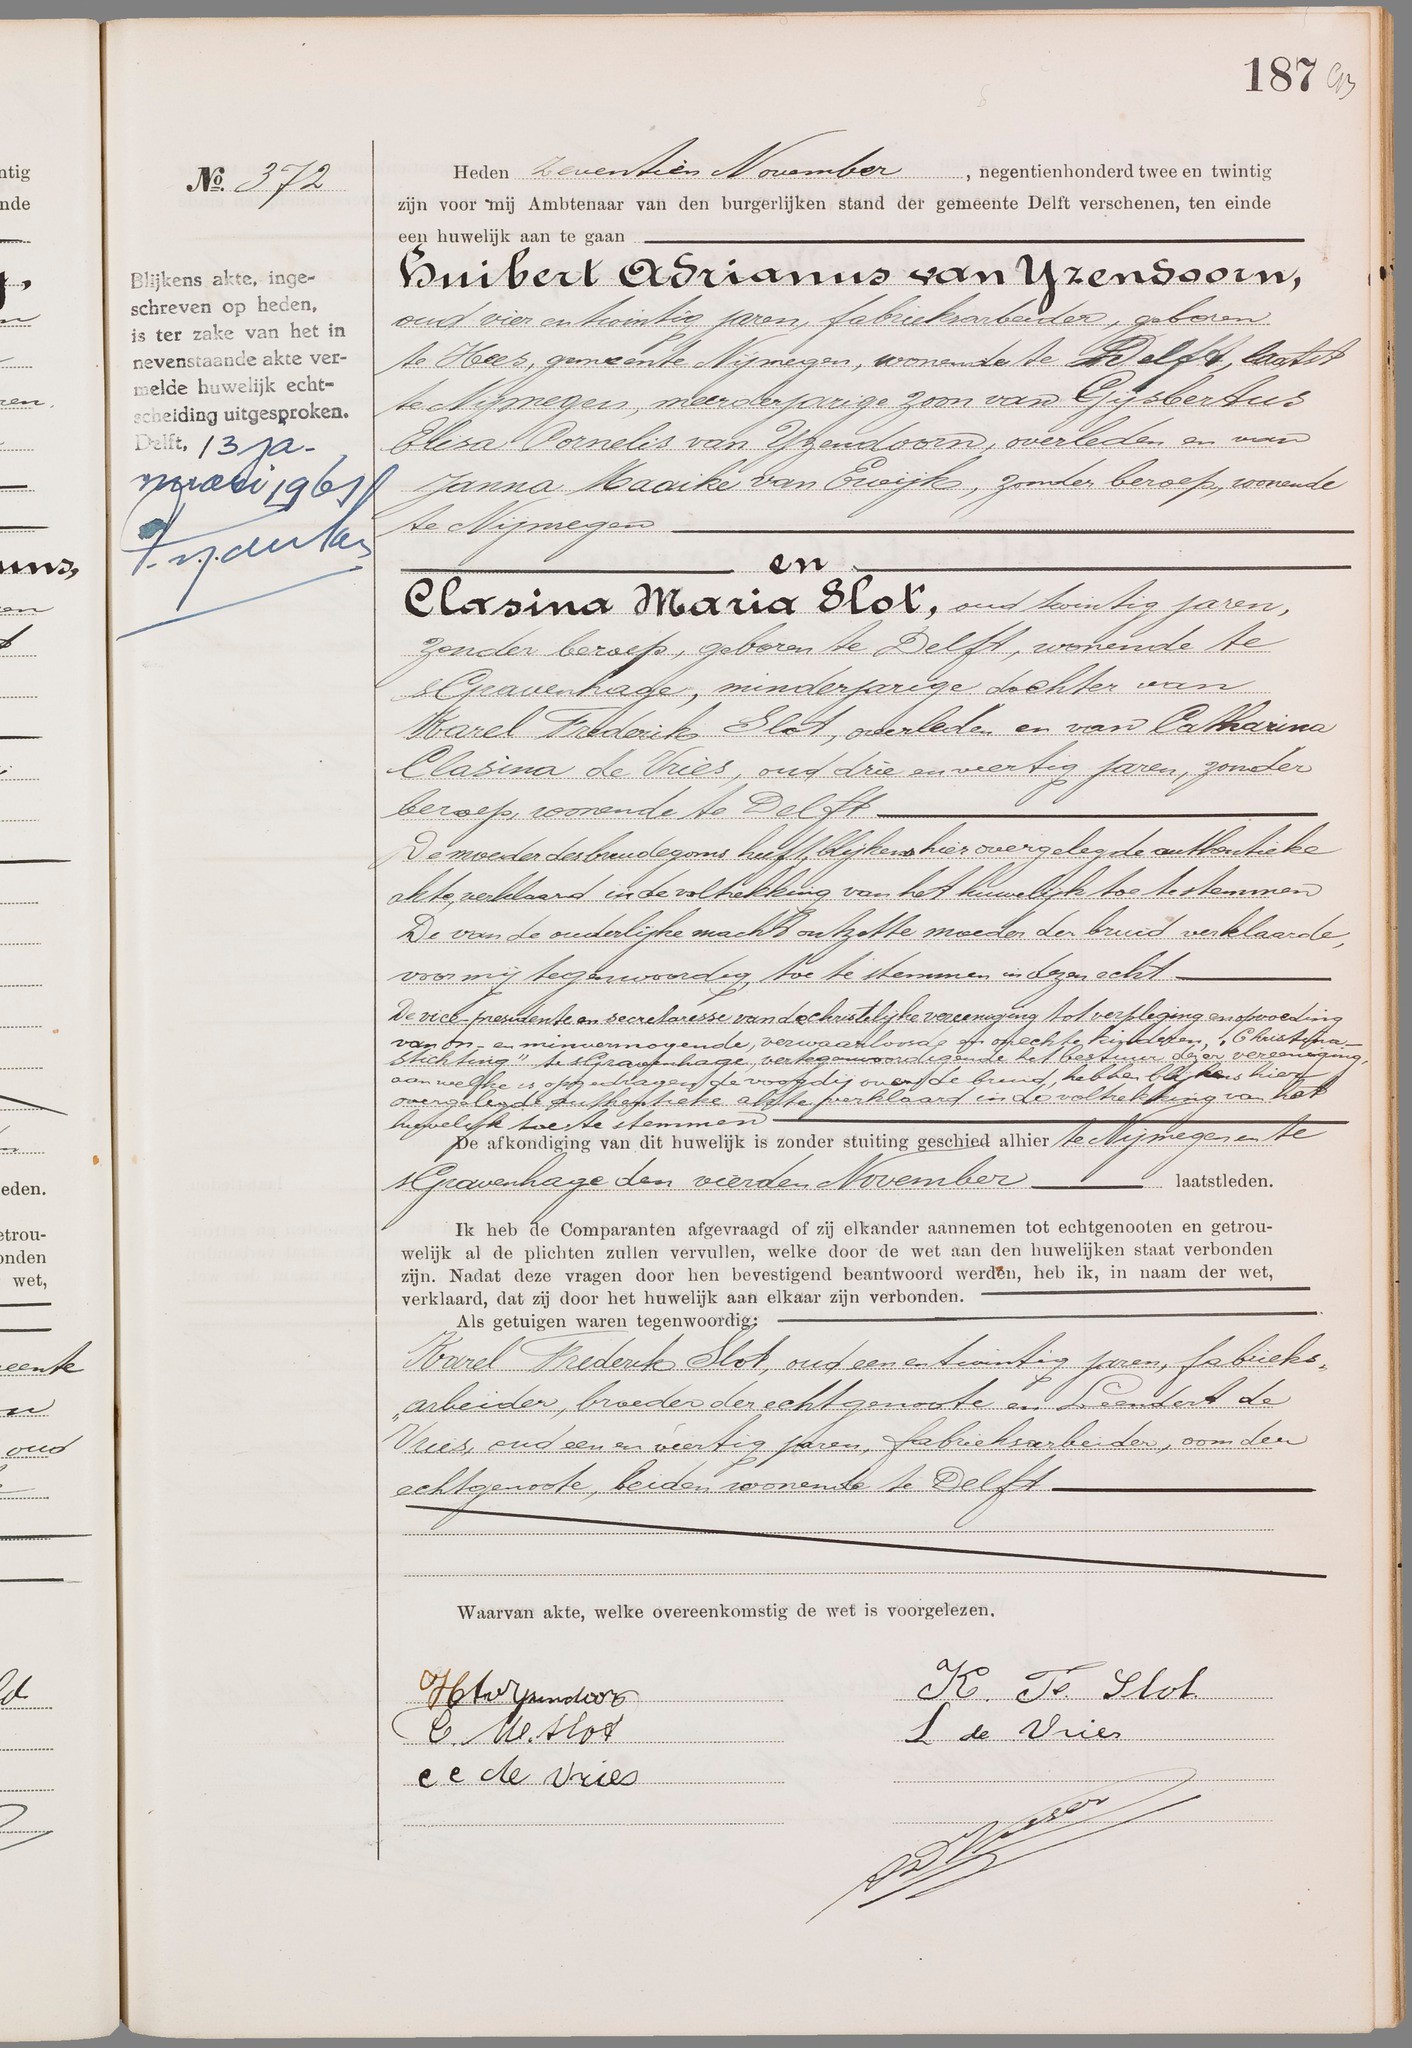 187
No. 372
Heden zeventien November, negentienhonderd twee en twintig
zijn voor mij Ambtenaar van den burgerlijken stand der gemeente Delft verschenen, ten einde
een huwelijk aan te gaan
Huibert Adrianus van Yzendoorn,
oud vier en twintig jaren, fabrieksarbeider, geboren
te Hees, gemeente Nijmegen, wonende te Delft, laatst
te Nijmegen, meerderjarige zoon van Gijsbertus
Elisa Cornelis van Yzendoorn, overleden en van
Janna Maaike van Ewijk, zonder beroep, wonende
te Nijmegen
en
Clasina Maria Slot, oud twintig jaren,
zonder beroep, geboren te Delft, wonende te
sGravenhage, minderjarige dochter van
Karel Frederik Slot, overleden en van Catharina
Clasina de Vries, oud drie en veertig jaren, zonder
beroep, wonende te Delft
De moeder des bruidegoms heeft, blijkens hier overgelegde authentieke
akte, verklaard in de voltrekking van het huwelijk toe te stemmen
De van de ouderlijke macht ontzette moeder der bruid verklaarde,
voor mij tegenwoordig, toe te stemmen in dezen echt
De vice-presidente en secretaresse van de christelijke vereeniging tot verpleging en opvoeding
van on- en minvermogende, verwaarloosde en onechte kinderen, "Christina-
Stichting" te sGravenhage, vertegenwoordigende het bestuur dezer vereeniging,
aan welke is opgedragen de voogdij over de bruid, hebben blijkens hier
overgelegde authentieke akte verklaard in de voltrekking van het
huwelijk toe te stemmen
De afkondiging van dit huwelijk is zonder stuiting geschied alhier te Nijmegen en te
sGravenhage den vierden November laatstleden.
Ik heb de Comparanten afgevraagd of zij elkander aannemen tot echtgenooten en getrou-
welijk al de plichten zullen vervullen, welke door de wet aan den huwelijken staat verbonden
zijn. Nadat deze vragen door hen bevestigend beantwoord werden, heb ik, in naam der wet,
verklaard, dat zij door het huwelijk aan elkaar zijn verbonden.
Als getuigen waren tegenwoordig:
Karel Frederik Slot, oud een en twintig jaren, fabrieks-
"arbeider, broeder der echtgenoote en Leendert de
Vries, oud een en veertig jaren, fabrieksarbeider, oom der
echtgenoote, beiden wonende te Delft
Waarvan akte, welke overeenkomstig de wet is voorgelezen.
K. Fr. Slot
C. M. Slot
L de Vries
cc de Vries
Blijkens akte, inge-
schreven op heden,
is ter zake van het in
nevenstaande akte ver-
melde huwelijk echt-
scheiding uitgesproken.
Delft, 13 ja-
nuari 1961
ntig
nde
eden.
etrou-
onden
wet,
eente
oud